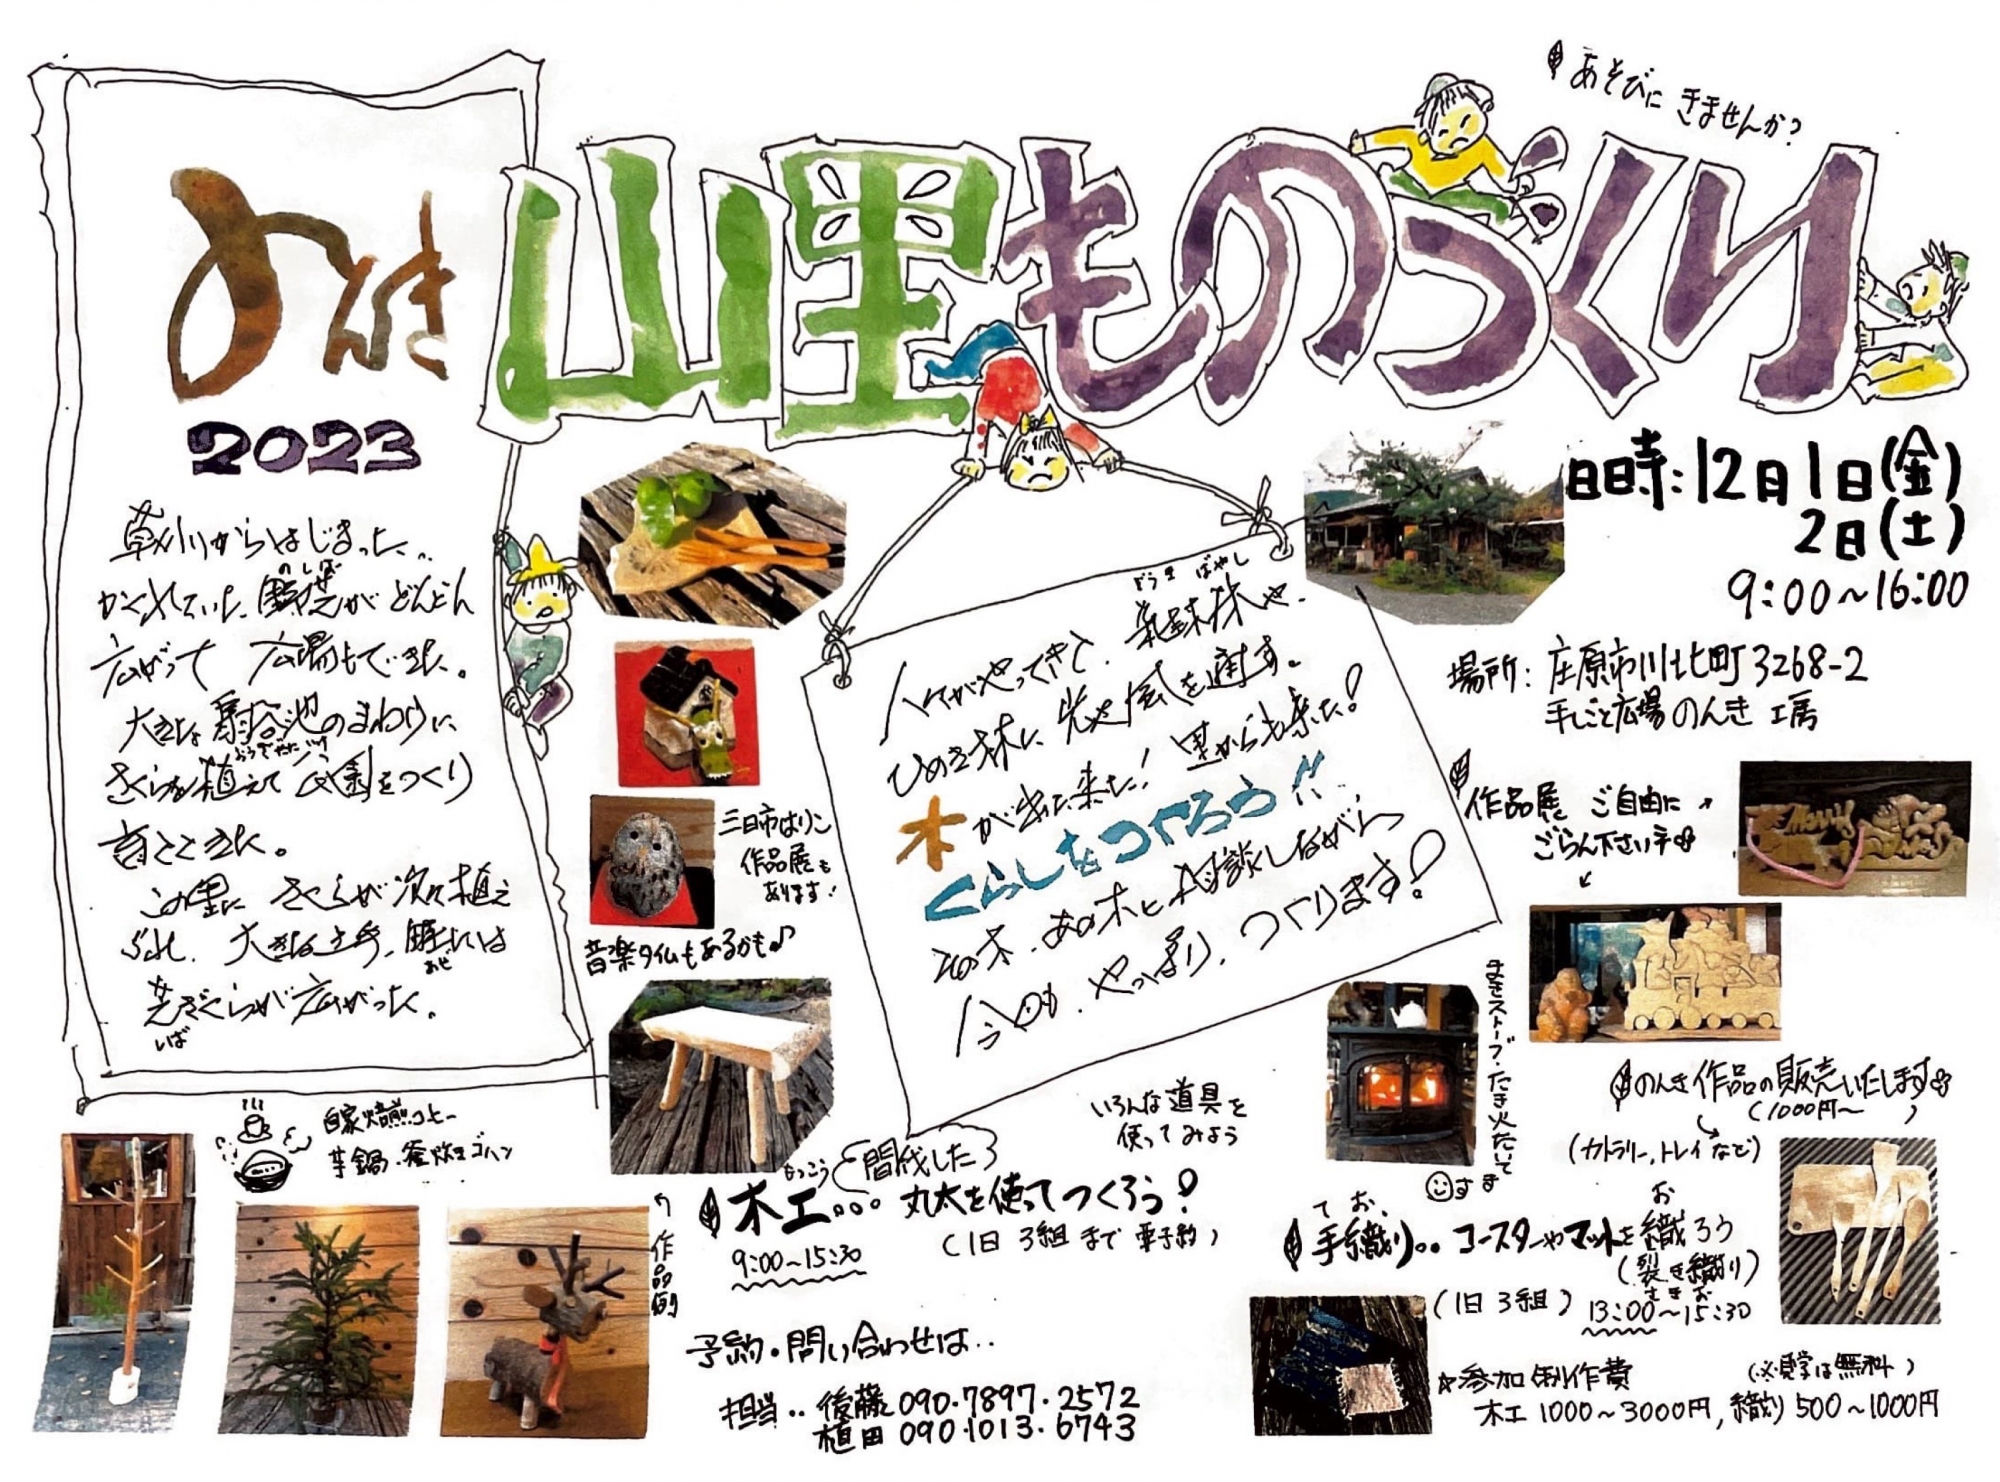 あそびに きませんか?
のんき
2023
山里ものづくり
草刈りからはじまった..
のしば
かくれていた、野芝がどんどん
広がって 広場もできた。
大きな 扇谷池のまわりに
おうぎだにいけ
さくらを植えて 公園をつくり
育ててきた。
この里に さくらが次々植え
られ、大きな土手、畦には
あぜ
芝ざくらが広がった。
しば
日時:12月1日(金)
2日(土)
9:00~16:00
場所:庄原市川北町3268-2
手しごと広場 のんき 工房
ぞうき ばやし
人がやってきて、雑木林や、
ひのき林に 光や風を通す。
木が出て来た! 里からも来た!
くらしをつくろう!!
この木、あの木と相談しながら、
今日も、やっぱり、つくります!
三日市はりこ
作品展も
あります!
音楽タイムもあるかも♪
作品展 ご自由に
ごらん下さいネ
まきストーブ・たき火たいて
ます
のんき作品の販売いたします
(1000円~)
(カトラリー,トレイなど)
自家焙煎コーヒー
芋鍋・釜炊きゴハン
作品例
いろんな道具を
使ってみよう
もっこう
木工... 間伐した
丸太を使ってつくろう!
9:00~15:30
(1日 3組まで 要予約)
ておお
手織り.. コースターやマットを織ろう
(裂き織り)
さきお
(1日3組) 13:00~15:30
予約・問い合わせは..
担当.. 後藤 090・7897・2572
植田 090・1013・6743
☆参加制作費 (※見学は無料)
木工 1000~3000円, 織り 500~1000円